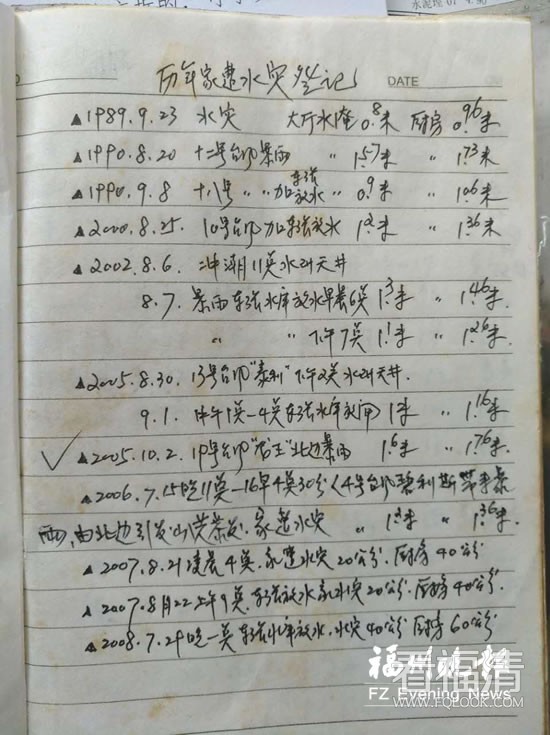 历年家遭水灾登记
DATE
▲1989.9.23 水灾 大厅水淹0.8米 厨房0.96米
▲1990.8.20 十二号台风暴雨 〃 1.57米 〃 1.73米
▲1990.9.8 十八号〃〃加东张放水 〃 0.9米 〃 1.06米
▲2000.8.25. 10号台风加东张放水 〃 1.2米 〃 1.36米
▲2002.8.6. 冲潮11点水叫天井
8.7. 暴雨东张水库放水早晨6点 1.3米 〃 1.46米.
〃 〃 下午7点 1.1米 〃 1.26米.
▲2005.8.30. 13号台风"泰利"下午2点水叫天井.
9.1. 中午1点-4点东张水库放闸 1米 〃 1.16米.
▲2005.10.2. 19号台风"龙王"北边暴雨 1.6米 〃 1.76米.
▲2006.7.15晚11点-16早4点30分〈4号台风碧利斯带来暴
雨,由北边引发山洪暴发.家遭水灾 〃 1.2米 〃 1.36米.
▲2007.8.21凌晨4点.家遭水灾20公分.厨房40公分
▲2007.8月22上午9点.东张放水家水灾20公分.厨房40公分.
▲2008.7.29晚一点东张水库放水.水灾40公分 厨房60公分
福州晚报
FZ Evening News
看福清
WWW.FQLOOK.COM